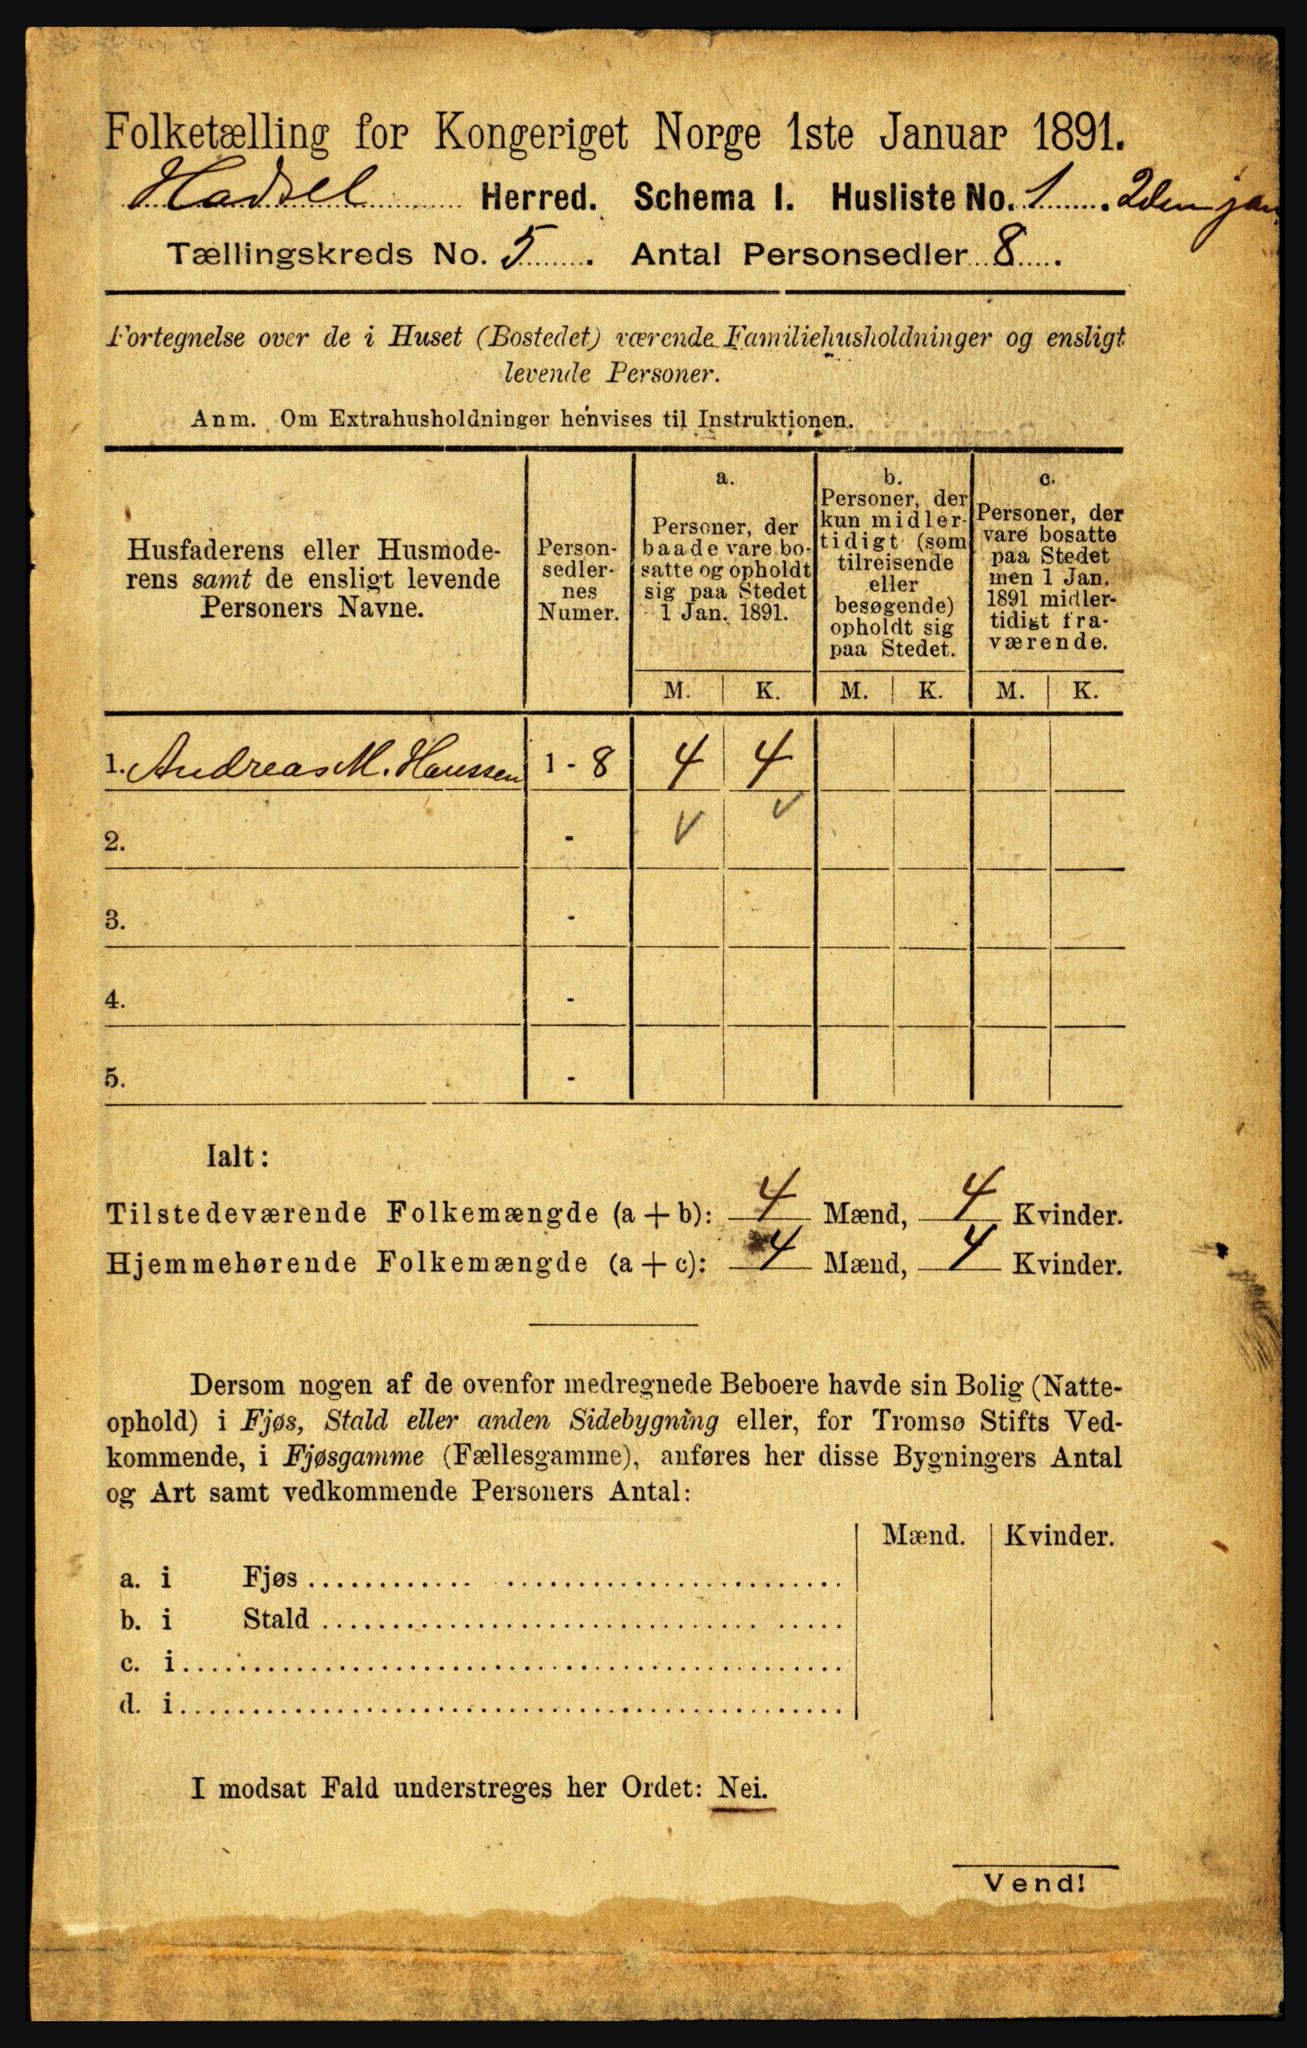 Folketælling for Kongeriget Norge 1ste Januar 1891.
Hadsel Herred. Schema I. Husliste No. 1. 2den jan
Tællingskreds No. 5. Antal Personsedler 8.
Fortegnelse over de i Huset (Bostedet) værende Familiehusholdninger og ensligt
levende Personer.
Anm. Om Extrahusholdninger henvises til Instruktionen.
Husfaderens eller Husmode-
rens samt de ensligt levende
Personers Navne.
Person-
sedler-
nes
Numer.
a.
Personer, der
baade vare bo-
satte og opholdt
sig paa Stedet
1 Jan. 1891.
b.
Personer, der
kun midler-
tidigt (som
tilreisende
eller
besøgende)
opholdt sig
paa Stedet.
c.
Personer, der
vare bosatte
paa Stedet
men 1 Jan.
1891 midler-
tidigt fra-
værende.
M. K. M. K. M. K.
1. Andreas M. Hanssen 1 - 8 4 4
2. -
3. -
4. -
5. -
Ialt:
Tilstedeværende Folkemængde (a + b): 4 Mænd, 4 Kvinder.
Hjemmehørende Folkemængde (a + c): 4 Mænd, 4 Kvinder.
Dersom nogen af de ovenfor medregnede Beboere havde sin Bolig (Natte-
ophold) i Fjøs, Stald eller anden Sidebygning eller, for Tromsø Stifts Ved-
kommende, i Fjøsgamme (Fællesgamme), anføres her disse Bygningers Antal
og Art samt vedkommende Personers Antal:
Mænd. Kvinder.
a. i Fjøs
b. i Stald
c. i
d. i
I modsat Fald understreges her Ordet: Nei.
Vend!